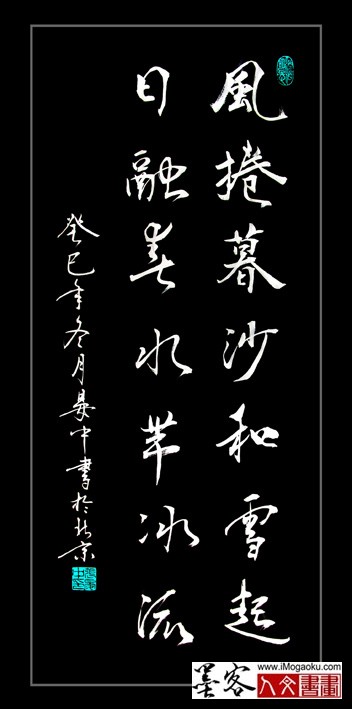 風捲暮沙和雪起
日融春水帶冰流
癸巳年冬月晏中書於北京
墨客
www.iMogaoku.com
人文書畫